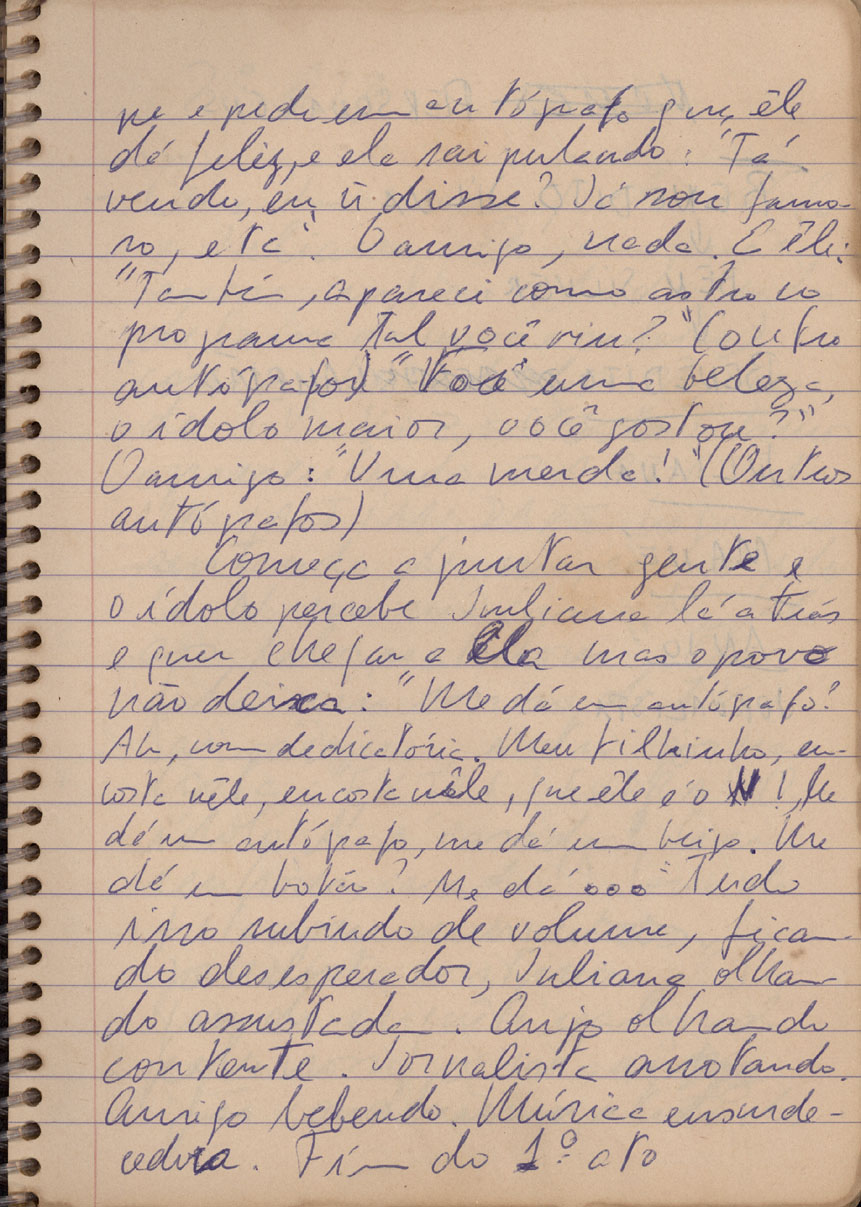 pe e pede um autógrafo que êle
dá feliz, e ela sai pulando: "Tá
vendo, eu ti disse? Já sou famo-
so, etc". O amigo, nada. E êle:
"Também, apareci como astro no
programa tal você viu?" (outro
autógrafos) "Foi uma beleza,
o ídolo maior, você gostou?"
O amigo: "Uma merda!" (Outros
autógrafos)
Começa a juntar gente e
o ídolo percebe Juliana lá atrás
e quer chegar a ela mas o povo
não deixa: "Me dá um autógrafo?
Ah, com dedicatória. Meu filhinho, en-
costa nêle, encosta nêle, que êle é o !, Me
dá um autógrafo, me dá um beijo. Me
dá um botão? Me dá ..." Tudo
isso subindo de volume, fican-
do desesperador, Juliana olhan-
do assustada. Anjo olhando
contente. Jornalista anotando.
Amigo bebendo. Música ensurde-
cedora. Fim do 1º ato